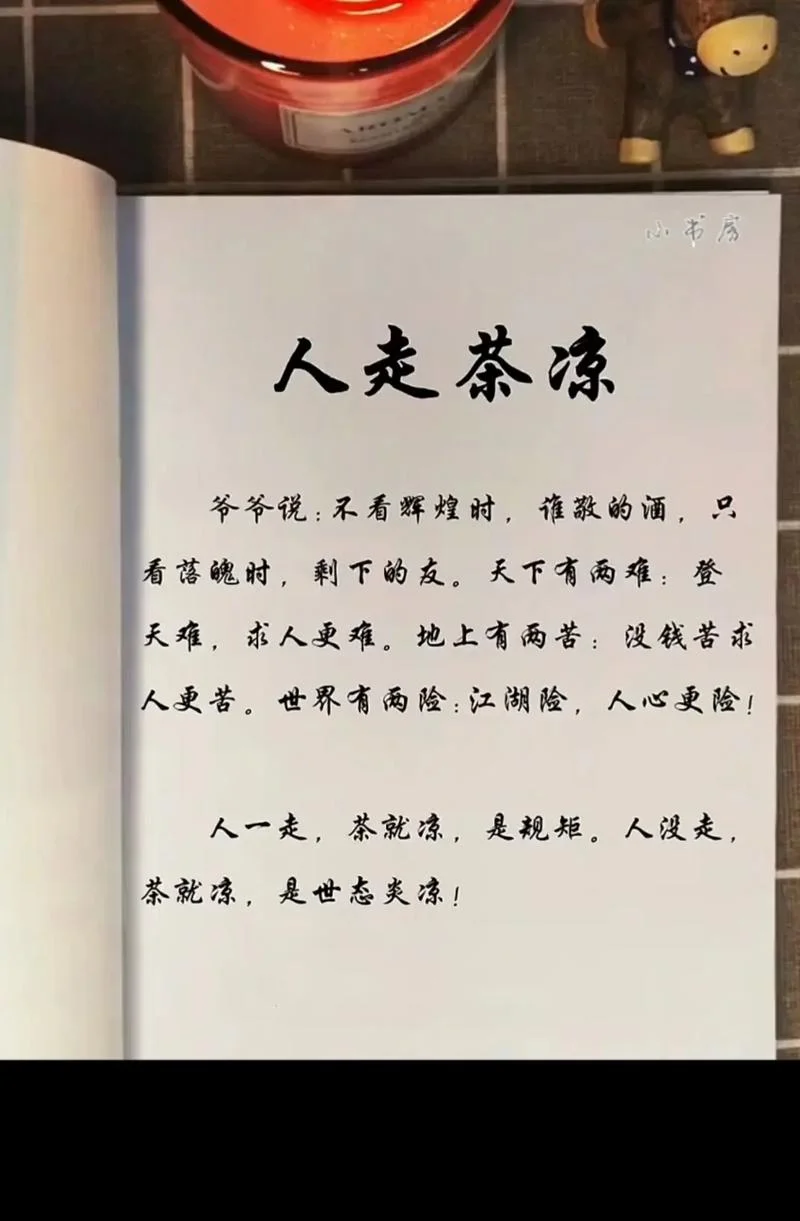 AROMA
小书房
人走茶凉
爷爷说:不看辉煌时,谁敬的酒,只
看落魄时,剩下的友。天下有两难:登
天难,求人更难。地上有两苦:没钱苦求
人更苦。世界有两险:江湖险,人心更险!
人一走,茶就凉,是规矩。人没走,
茶就凉,是世态炎凉!